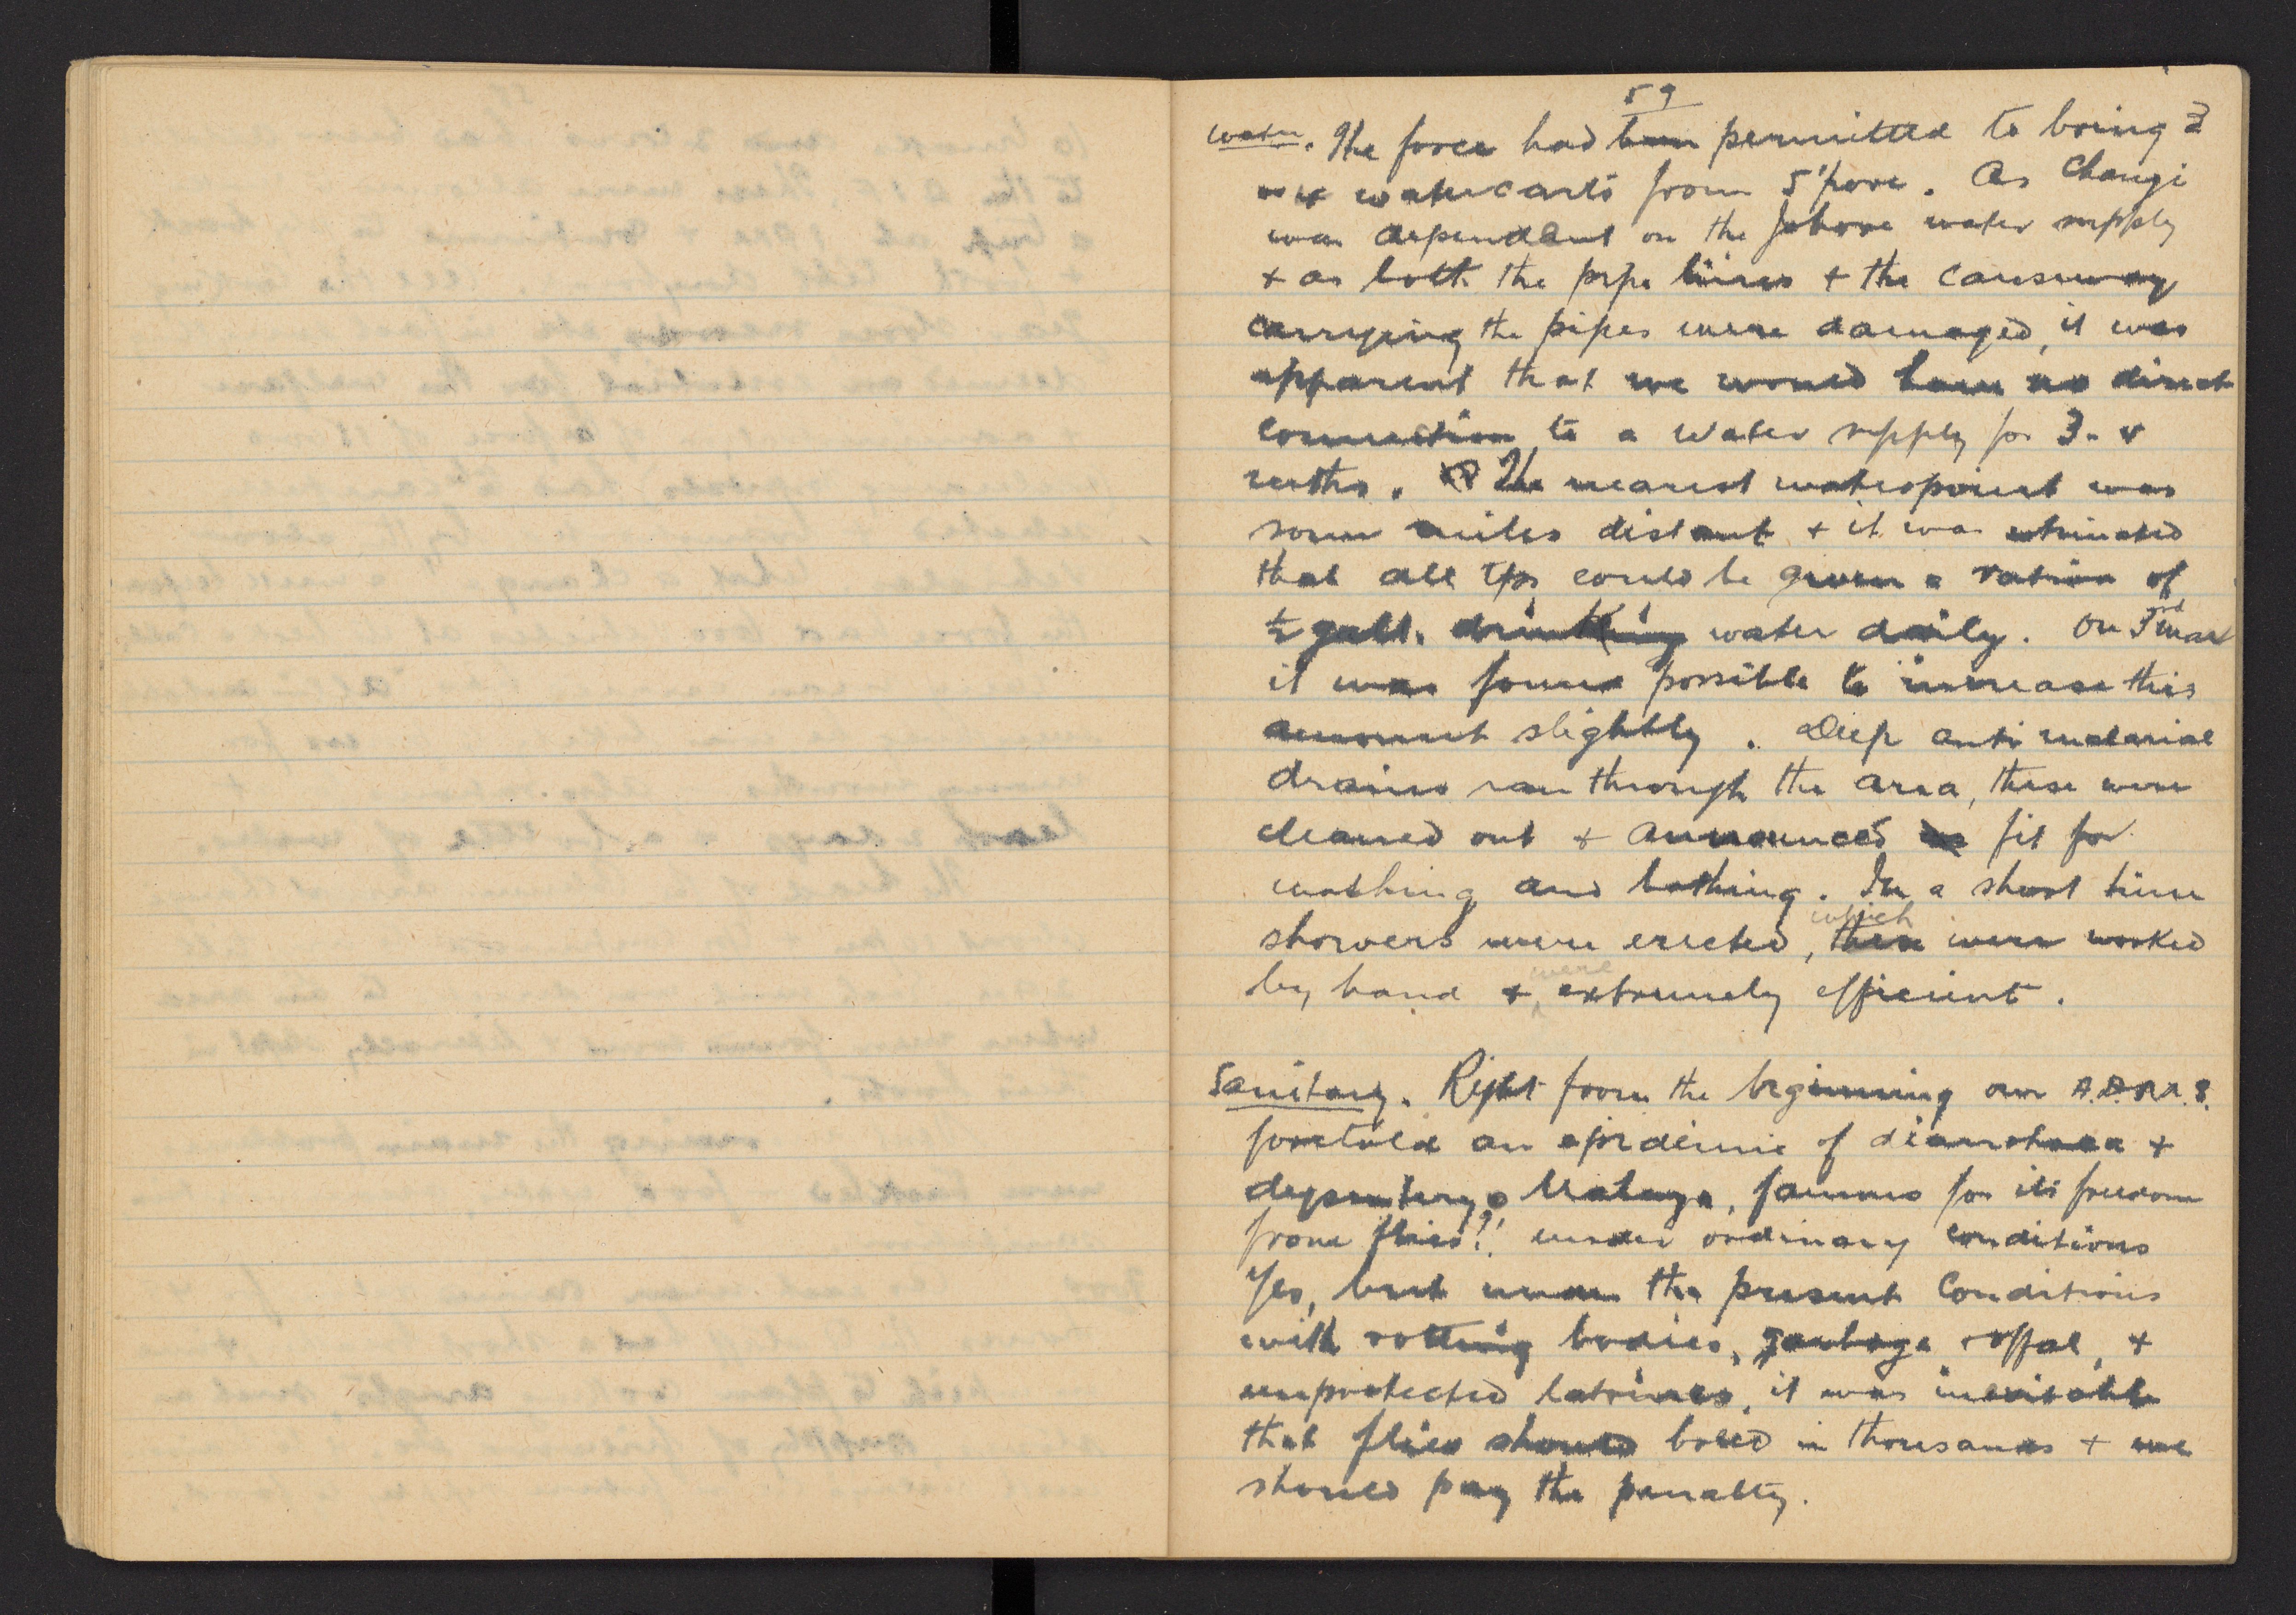 59
Water. The force had been permitted to bring 2
watercarts from S'pore. As Changi
was dependant on the Johore water supply
+ as both the pipe lines + the causeway
carrying the pipes were damaged, it was
apparent that we would have no direct
connection to a water supply for 3
mths. The nearest waterpoint was
some miles distant + it was estimated
that all tps could be given a ration of
½ gall. drinking water daily. On 3rd Mar
it was found possible to increase this
amount slightly. Deep anti malarial
drains ran through the area, these were
cleaned out + announced as fit for
washing and bathing. In a short time
showers were erected, these which were worked
by hand + were extremely efficient.
Sanitary. Right from the beginning our A.D.M.S.
foretold an epidemic of diarrhoea +
dysentery. Malaya, famous for its freedom
from flies?! under ordinary conditions
Yes, but under the present conditions
with rotting bodies, garbage offal, +
unprotected latrines, it was inevitable
that flies should breed in thousands + we
should pay the penalty.